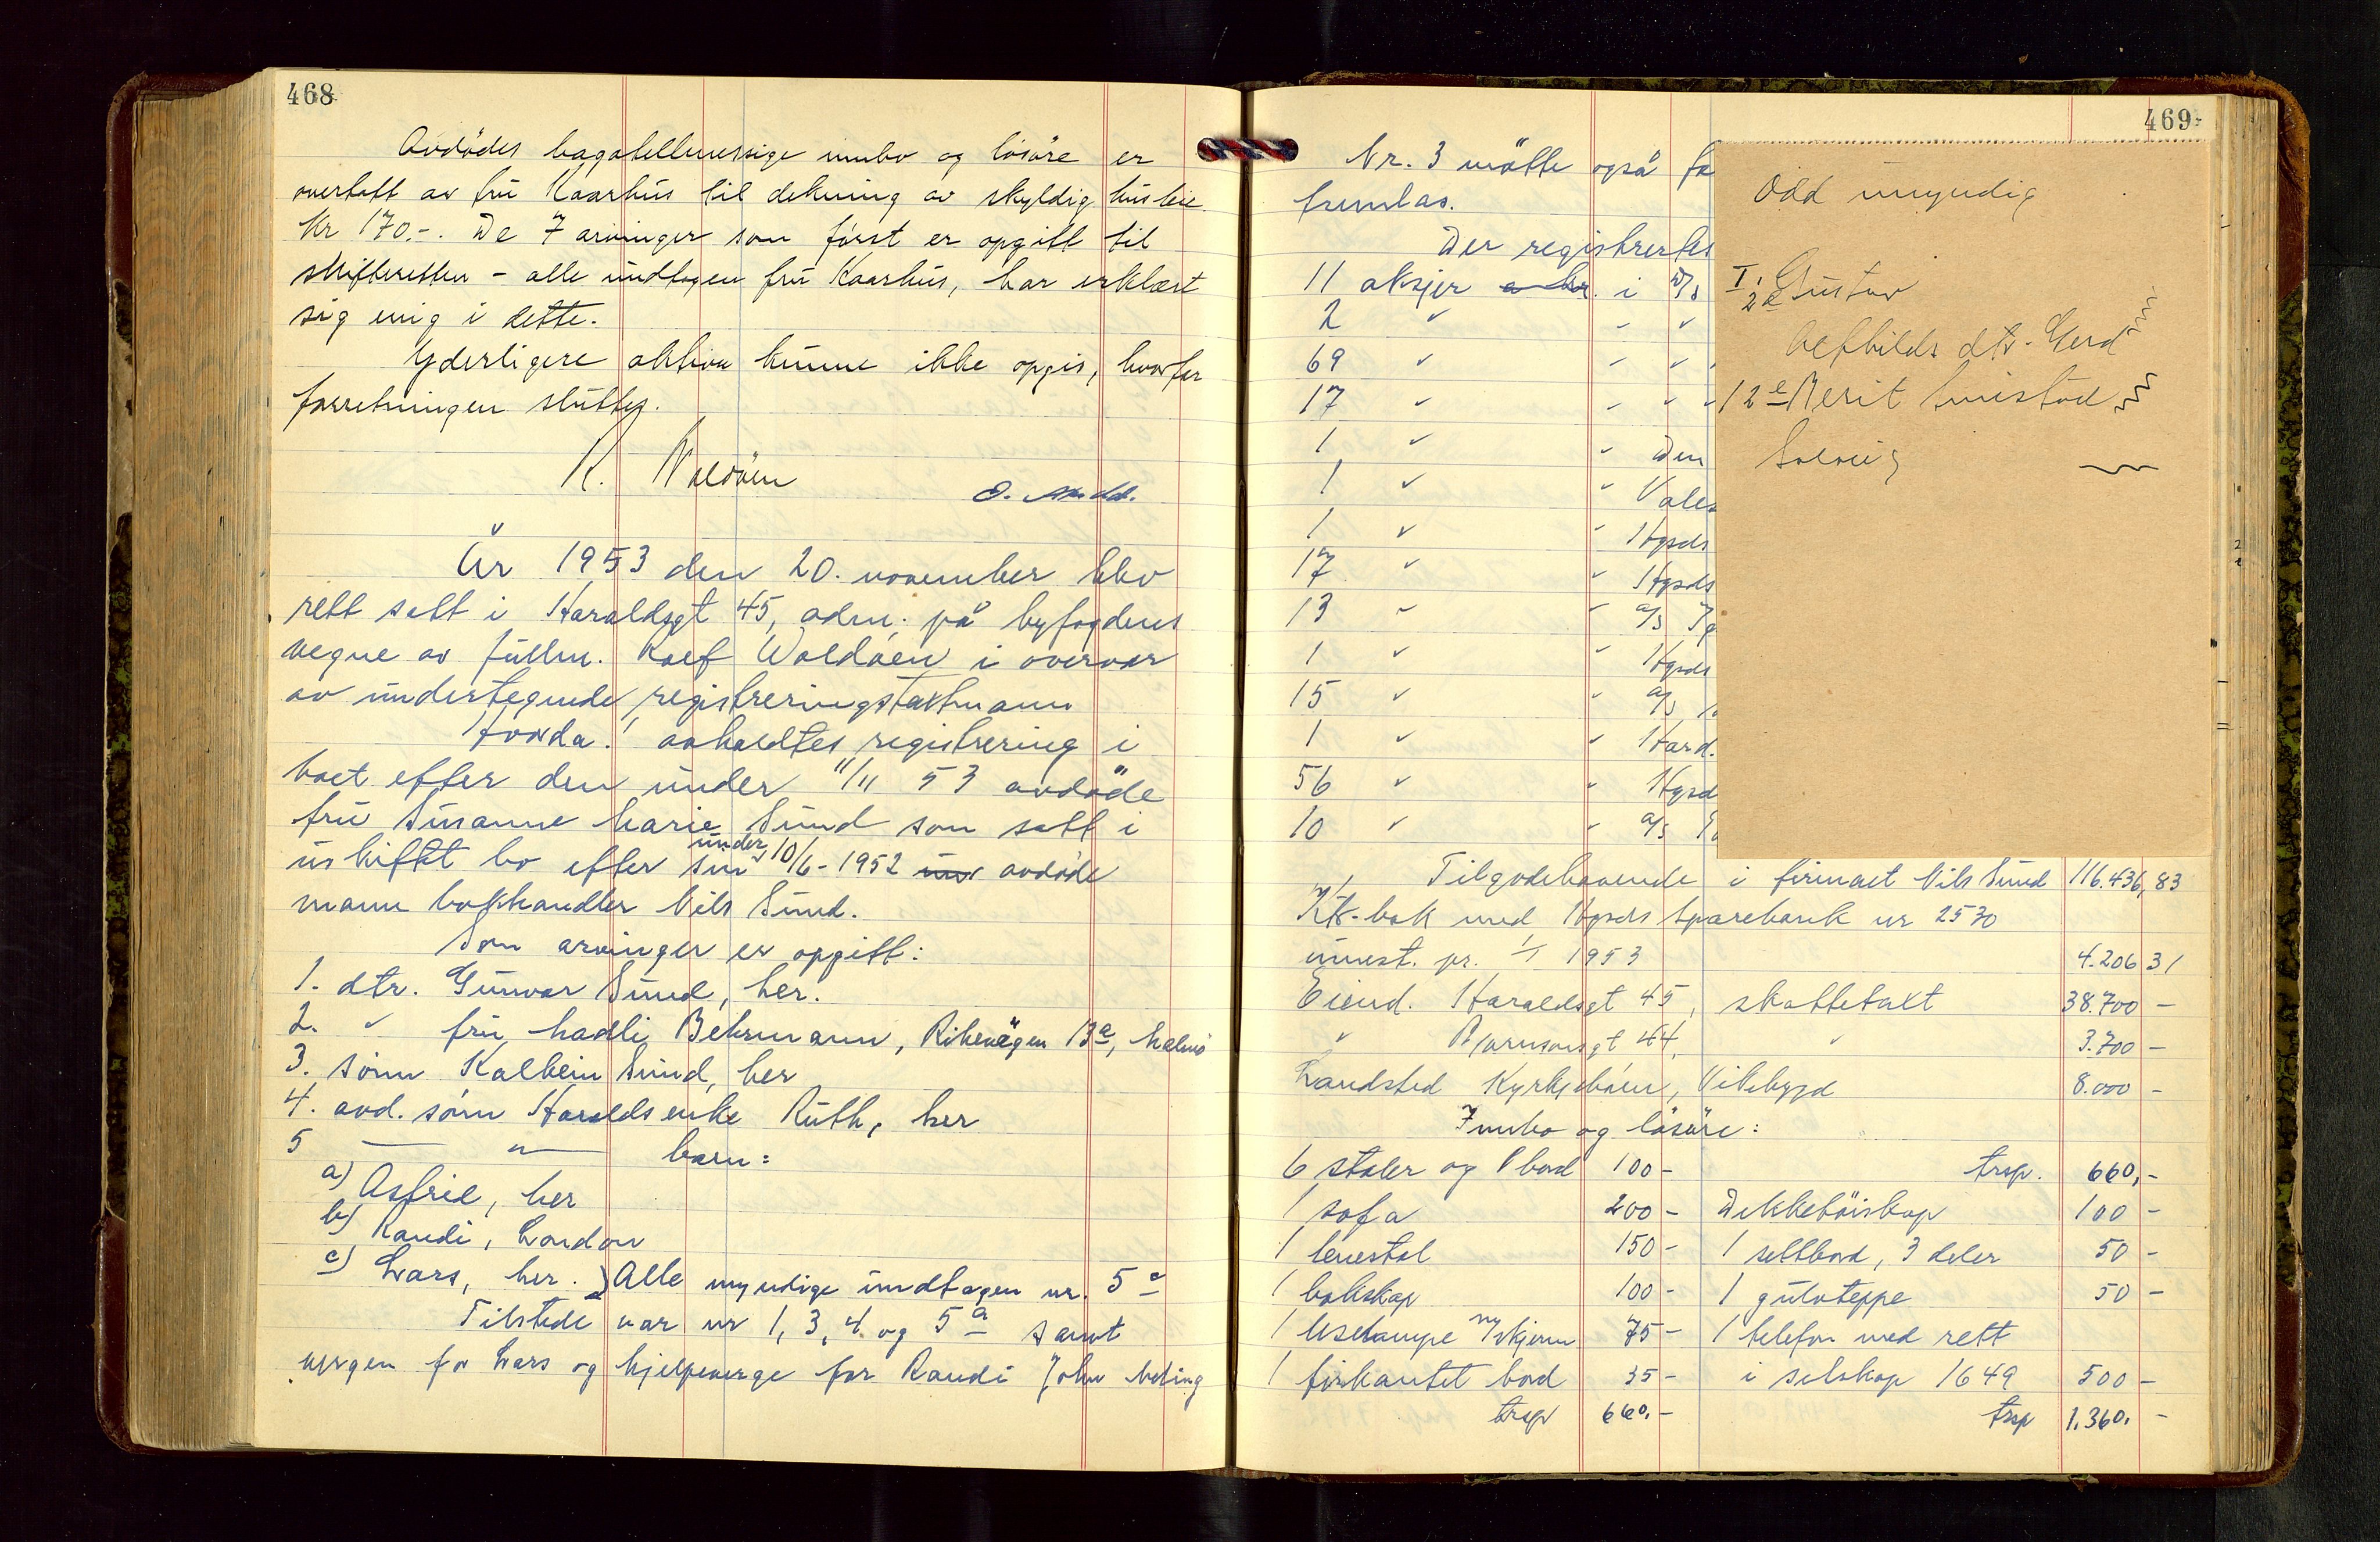 468
Avdödes bagatellmessige innbo og lösöre er
overtatt av fru Kaarhus til dekning av skyldig husleie
Kr 170.-. De 7 arvinger som först er opgitt til
skifteretten - alle undtagen fru Kaarhus, har erklært
sig enig i dette.
Yderligere aktiva kunne ikke opgis, hvorfor
forretningen sluttes.
K. Valdöen
År 1953 den 20. november blev
rett satt i Haraldsgt 45, adm. på byfogdens
vegne av fullm. Valdöen i overvær
av undertegnede registreringstakstmann
Hovda. avholdtes registrering i
boet efter den under 11/11 53 avdöde
fru Susanne Marie Sund som satt i
uskiftet bo efter sin under 10/6-1952 avdöde
mann bokhandler Nils Sund.
Som arvinger er opgitt:
1. dtr. Gunvor Sund, her.
2. " fru Madli Behrmann, Riksvägen 13a, Malmö
3. sönn Kolbein Sund, her
4. avd. sönn Haralds enke Ruth, her
5 — " — barn:
a) Astrid, her
b) Randi, London
c) Lars, her. Alle myndige undtagen nr. 5c
Tilstede var nr 1, 3, 4 og 5a samt
vergen for Lars og hjelpeverge for Randi John
469
Nr. 3 måtte også
fremlas.
Der registrertes
11 aksjer i D/S
2 " - "
69 " - "
17 " - "
1 " " Den
1 " "
1 " " Hgsds
17 " " Hgsds
13 " " a/s
1 " " Hgsds
15 " " a/s
1 " " Hard.
56 " " Hgsd
10 " " a/s
Odd umyndig
I. Gustav
2
dtr. Gerd
12e Berit
Solveig
Tilgodehavende i firmaet Nils Sund 116.436,83
bok med Hgsds Sparebank nr 2530
innest. pr. 1/1 1953 4.206 31
Eiend. Haraldsgt 45, skattetakst 38.700 -
" Bjørnsonsgt 44, " 3.700 -
Landsted Kyrkjeböen, Vikebygd 8.000 -
Innbo og lösöre:
6 stoler og 1 bord 100 - trsp. 660,-
1 sofa 200 - Dekketöiskap 100 -
1 lenestol 150 - 1 settbord, 3 deler 50 -
1 bokskap 100 - 1 gulvteppe 50 -
1 leselampe m/skjerm 75 - 1 telefon med rett
1 firkantet bord 35 - i selskap 1649 500 -
trsp 660.- trsp 1.360. -